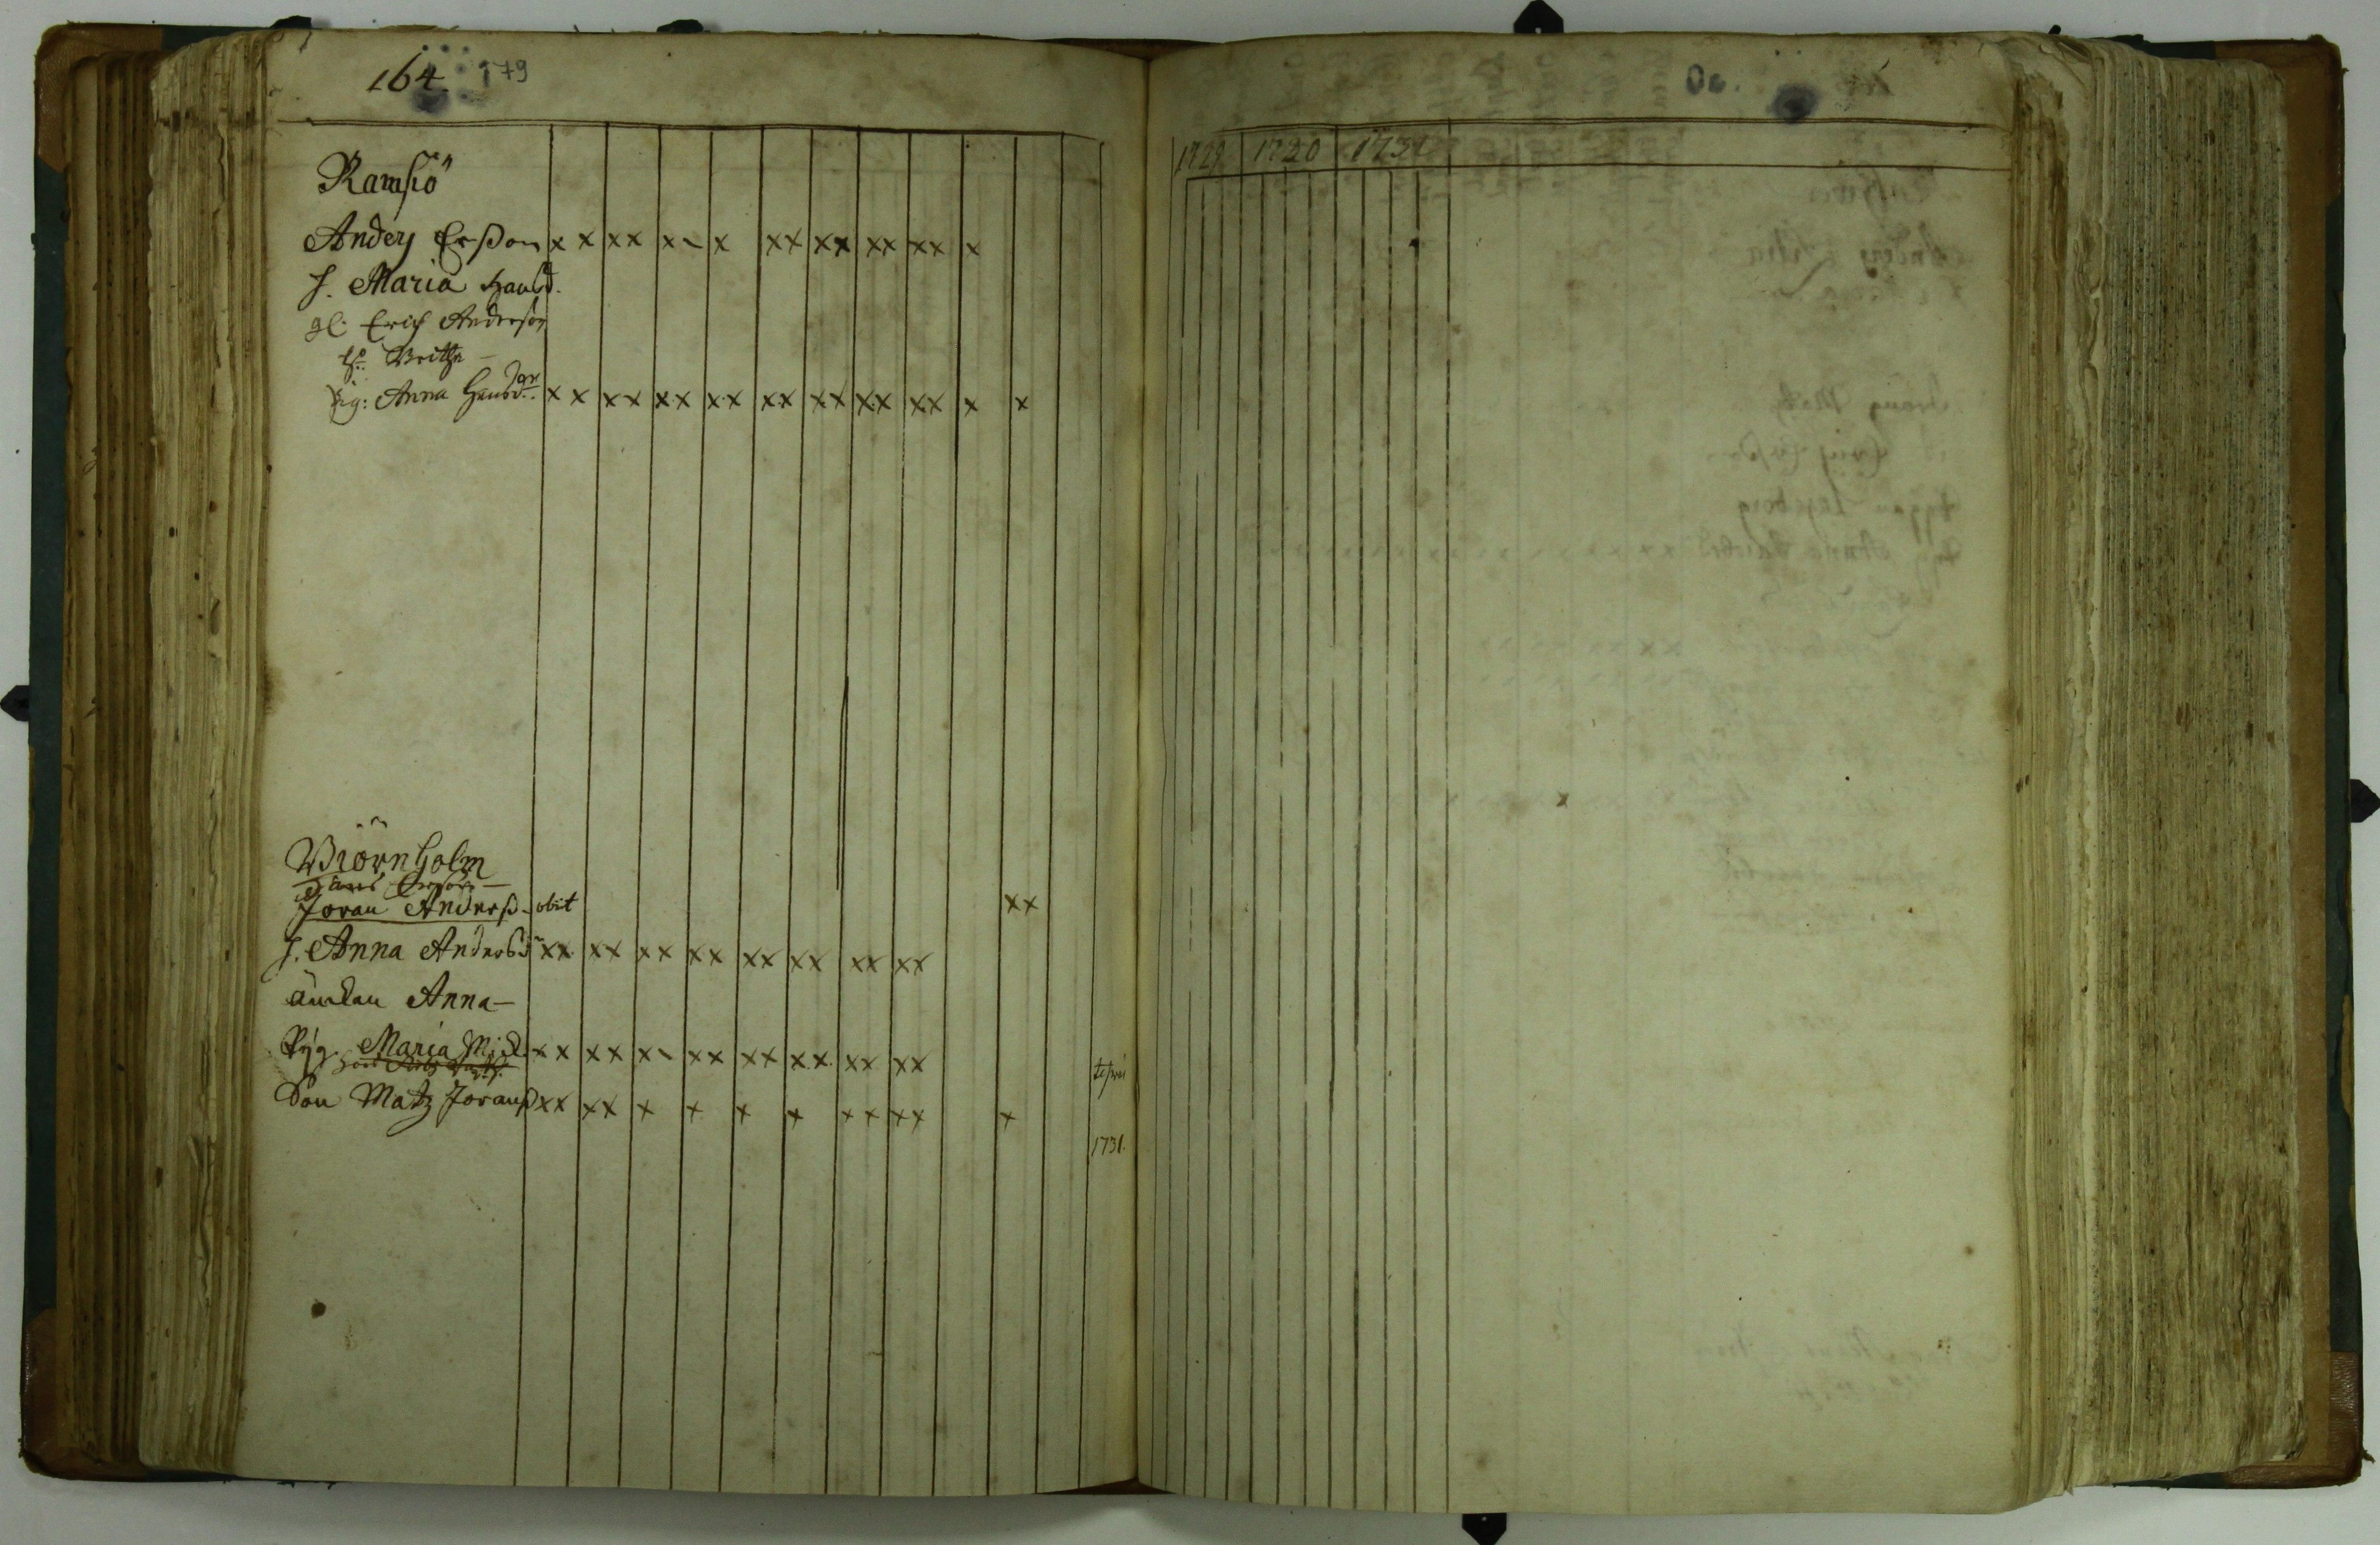 164. 179
Ramsiö
Anders Erßon x x x x x - x x x x x x x x x x
h. Maria Hansd.
gl. Erich Andersson
h. Britha -
Pig: Anna Hansdr. x x x x x x x x x x x x x x x x x x
Biörnholm
Hans Ersson -
Jöran Anderß. obiit x x
h. Anna Andersd x x x x x x x x x x x x x x x x
änckan Anna -
Pig Maria M:d. x x x x x - x x x x x x x x x x
Son Matz Joranß x x x x x x x x x x x x x
1731.
1729 1730 1731